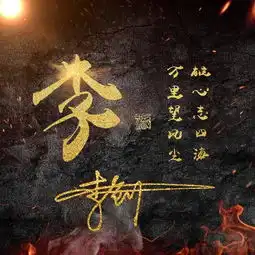 李
雄心志四海
万里望风尘